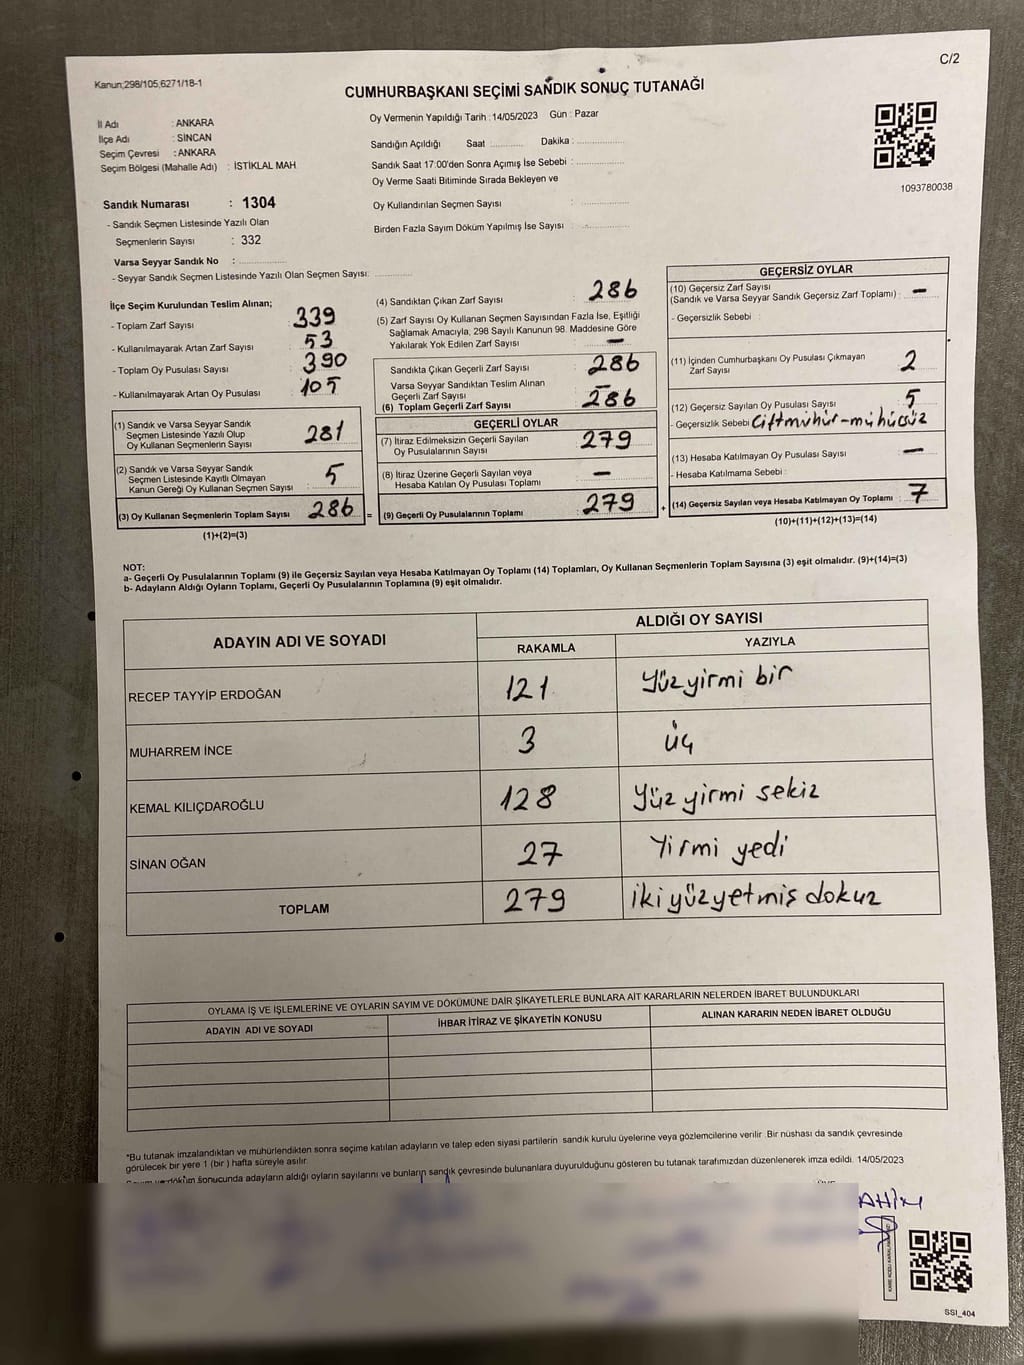 C/2
Kanun;298/105,6271/18-1
CUMHURBAŞKANI SEÇİMİ SANDIK SONUÇ TUTANAĞI
İl Adı : ANKARA
İlçe Adı : SİNCAN
Seçim Çevresi : ANKARA
Seçim Bölgesi (Mahalle Adı) : İSTİKLAL MAH
Oy Vermenin Yapıldığı Tarih : 14/05/2023 Gün : Pazar
Sandığın Açıldığı Saat ............ Dakika : ............
Sandık Saat 17:00'den Sonra Açımış İse Sebebi : ............
Oy Verme Saati Bitiminde Sırada Bekleyen ve
Oy Kullandırılan Seçmen Sayısı : ............
Birden Fazla Sayım Döküm Yapılmış İse Sayısı : ............
1093780038
Sandık Numarası : 1304
- Sandık Seçmen Listesinde Yazılı Olan
Seçmenlerin Sayısı : 332
Varsa Seyyar Sandık No : ............
- Seyyar Sandık Seçmen Listesinde Yazılı Olan Seçmen Sayısı: ............
İlçe Seçim Kurulundan Teslim Alınan;
- Toplam Zarf Sayısı : 339
- Kullanılmayarak Artan Zarf Sayısı : 53
- Toplam Oy Pusulası Sayısı : 390
- Kullanılmayarak Artan Oy Pusulası : 105
(1) Sandık ve Varsa Seyyar Sandık
Seçmen Listesinde Yazılı Olup
Oy Kullanan Seçmenlerin Sayısı : 281
(2) Sandık ve Varsa Seyyar Sandık
Seçmen Listesinde Kayıtlı Olmayan
Kanun Gereği Oy Kullanan Seçmen Sayısı : 5
(3) Oy Kullanan Seçmenlerin Toplam Sayısı : 286 =
(1)+(2)=(3)
(4) Sandıktan Çıkan Zarf Sayısı : 286
(5) Zarf Sayısı Oy Kullanan Seçmen Sayısından Fazla İse, Eşitliği
Sağlamak Amacıyla, 298 Sayılı Kanunun 98. Maddesine Göre
Yakılarak Yok Edilen Zarf Sayısı : —
Sandıkta Çıkan Geçerli Zarf Sayısı : 286
Varsa Seyyar Sandıktan Teslim Alınan
Geçerli Zarf Sayısı : —
(6) Toplam Geçerli Zarf Sayısı : 286
GEÇERLİ OYLAR
(7) İtiraz Edilmeksizin Geçerli Sayılan
Oy Pusulasının Sayısı : 279
(8) İtiraz Üzerine Geçerli Sayılan veya
Hesaba Katılan Oy Pusulası Toplamı : —
(9) Geçerli Oy Pusulalarının Toplamı : 279 +
GEÇERSİZ OYLAR
(10) Geçersiz Zarf Sayısı
(Sandık ve Varsa Seyyar Sandık Geçersiz Zarf Toplamı) : —
- Geçersizlik Sebebi :
(11) İçinden Cumhurbaşkanı Oy Pusulası Çıkmayan
Zarf Sayısı : 2
(12) Geçersiz Sayılan Oy Pusulası Sayısı : 5
- Geçersizlik Sebebi Çiftmühür-mühürsüz
(13) Hesaba Katılmayan Oy Pusulası Sayısı : —
- Hesaba Katılmama Sebebi :
(14) Geçersiz Sayılan veya Hesaba Katılmayan Oy Toplamı : 7
(10)+(11)+(12)+(13)=(14)
NOT:
a- Geçerli Oy Pusulalarının Toplamı (9) ile Geçersiz Sayılan veya Hesaba Katılmayan Oy Toplamı (14) Toplamları, Oy Kullanan Seçmenlerin Toplam Sayısına (3) eşit olmalıdır. (9)+(14)=(3)
b- Adayların Aldığı Oyların Toplamı, Geçerli Oy Pusulalarının Toplamına (9) eşit olmalıdır.
ADAYIN ADI VE SOYADI
ALDIĞI OY SAYISI
RAKAMLA YAZIYLA
RECEP TAYYİP ERDOĞAN 121 Yüzyirmi bir
MUHARREM İNCE 3 üç
KEMAL KILIÇDAROĞLU 128 Yüz yirmi sekiz
SİNAN OĞAN 27 Yirmi yedi
TOPLAM 279 ikiyüzyetmiş dokuz
OYLAMA İŞ VE İŞLEMLERİNE VE OYLARIN SAYIM VE DÖKÜMÜNE DAİR ŞİKAYETLERLE BUNLARA AİT KARARLARIN NELERDEN İBARET BULUNDUKLARI
ADAYIN ADI VE SOYADI İHBAR İTİRAZ VE ŞİKAYETİN KONUSU ALINAN KARARIN NEDEN İBARET OLDUĞU
*Bu tutanak imzalandıktan ve mühürlendikten sonra seçime katılan adayların ve talep eden siyasi partilerin sandık kurulu üyelerine veya gözlemcilerine verilir. Bir nüshası da sandık çevresinde
görülecek bir yere 1 (bir ) hafta süreyle asılır.
sonucunda adayların aldığı oyların sayılarını ve bunların sandık çevresinde bulunanlara duyurulduğunu gösteren bu tutanak tarafımızdan düzenlenerek imza edildi. 14/05/2023
AHİM
SSI_404